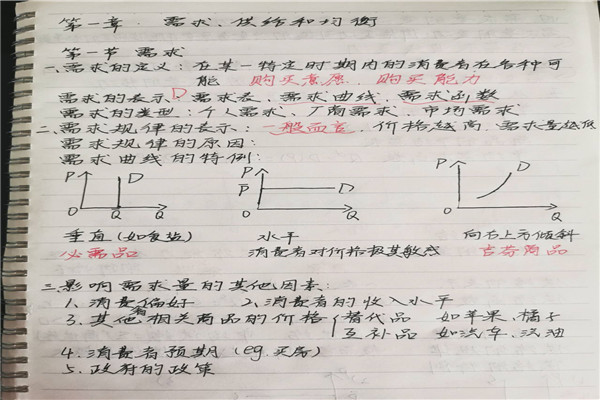 第一章 需求、供给和均衡
第一节 需求
一、需求的定义:在某一特定时期内的消费者在各种可
能 购买意愿、购买能力
需求的表示D:需求表、需求曲线、需求函数
需求的类型:个人需求、厂商需求、市场需求
二、需求规律的表示:一般而言,价格越高,需求量越低
需求规律的原因:
需求曲线的特例:
P D O Q Q
P P̄ D O Q
P D O Q
垂直(如食盐) 水平 向右上方倾斜
必需品 消费者对价格极其敏感 吉芬商品
三、影响需求量的其他因素:
1、消费者偏好 2、消费者的收入水平
3、其他相关商品的价格 { 替代品 如苹果、橘子
互补品 如汽车、汽油
4、消费者预期(eg.买房)
5、政府的政策